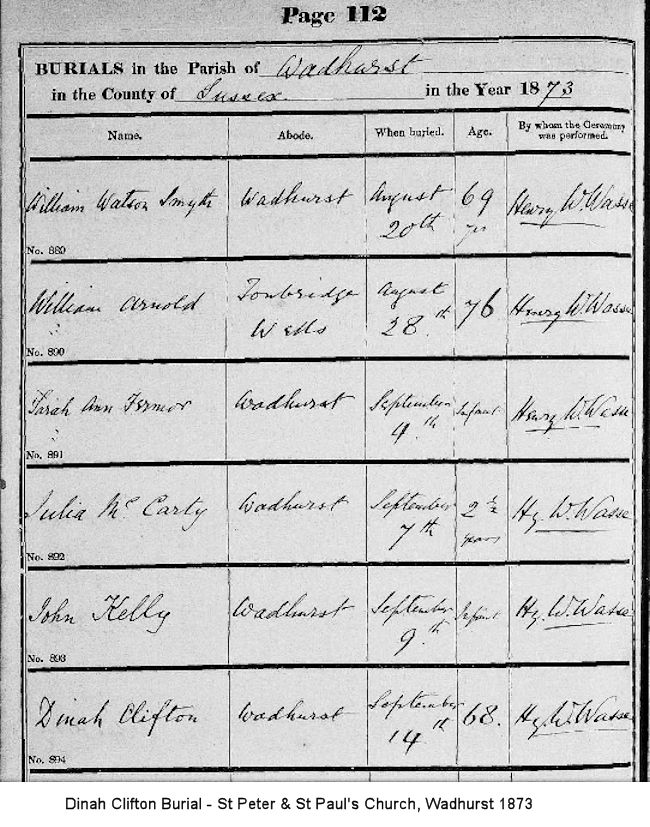 Page 112
BURIALS in the Parish of Wadhurst
in the County of Sussex. in the Year 1873
Name. Abode. When buried. Age. By whom the Ceremony was performed.
William Watson Smyth Wadhurst August 20th 69 yrs Henry W. Wasse
No. 889
William Arnold Tonbridge Wells August 28th 76 Henry W. Wasse
No. 890
Sarah Ann Fermor Wadhurst September 4th Infant Henry W. Wasse
No. 891
Julia McCarty Wadhurst September 7th 2½ years Hy. W. Wasse
No. 892
John Kelly Wadhurst September 9th Infant Hy. W. Wasse
No. 893
Dinah Clifton Wadhurst September 14th 68. Hy. W. Wasse
No. 894
Dinah Clifton Burial - St Peter & St Paul's Church, Wadhurst 1873